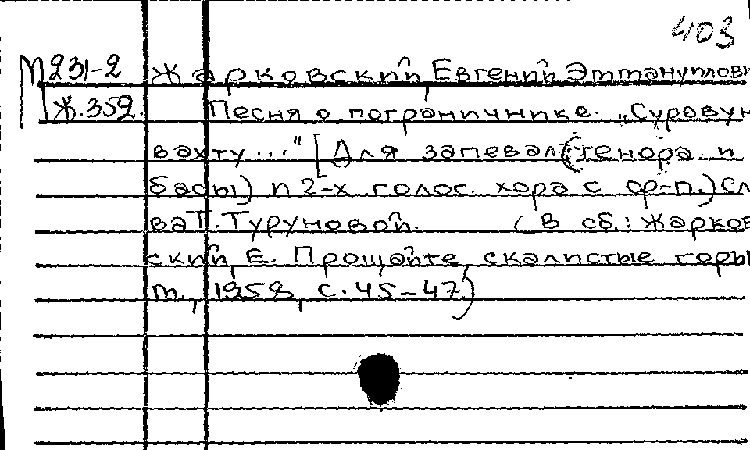 403
М231-2 Жарковский, Евгений Эммануилови
Ж.359. Песня о пограничнике. „Суровую
вахту..." [Для запевал (тенора и
басы) и 2-х голос. хора с ф-п.) Сл
ва П. Туруновой. (В сб.: Жарков
ский, Е. Прощайте, скалистые горы
М., 1958, с. 45-47)